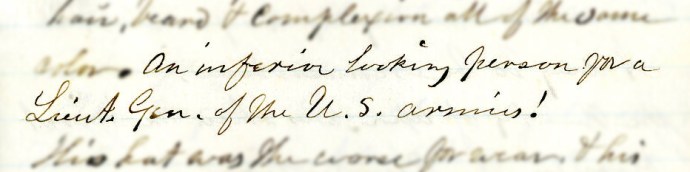 hair, beard & complexion all of the same
color. An inferior looking person for a
Lieut. Gen. of the U.S. armies!
His hat was the worse for wear, & his